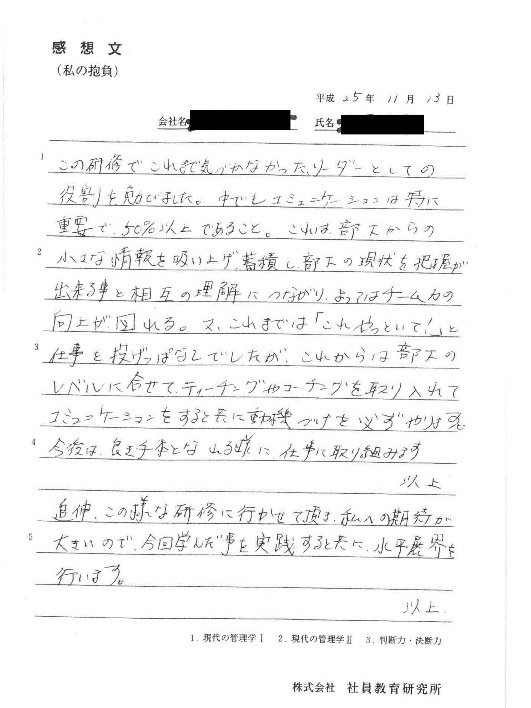 感想文
(私の抱負)
平成 25年 11月 13日
会社名 氏名
1 この研修でこれまで気づかなかった、リーダーとしての
役割を動でました。中でもコミュニケーションは特に
重要で、50%以上であること。これは、部下からの
2 小さな情報を吸い上げ、蓄積し、部下の現状を把握が
出来る事と相互の理解につながり、よってはチーム力の
向上が図れる。又、これまでは「これやっといて!」と
3 仕事を投げっぱなしでしたが、これからは部下の
レベルに合せて、ティーチングやコーチングを取り入れて
コミュニケーションをすると共に動機づけを必ずやります。
4 今後は、良き手本となれる様に、仕事に取り組みます
以上
追伸、この様な研修に行かせて頂き、私への期待が
5 大きいので、今回学んだ事を実践すると共に、水平展界を
行います。
以上.
1. 現代の管理学Ⅰ 2. 現代の管理学Ⅱ 3. 判断力・決断力
株式会社 社員教育研究所